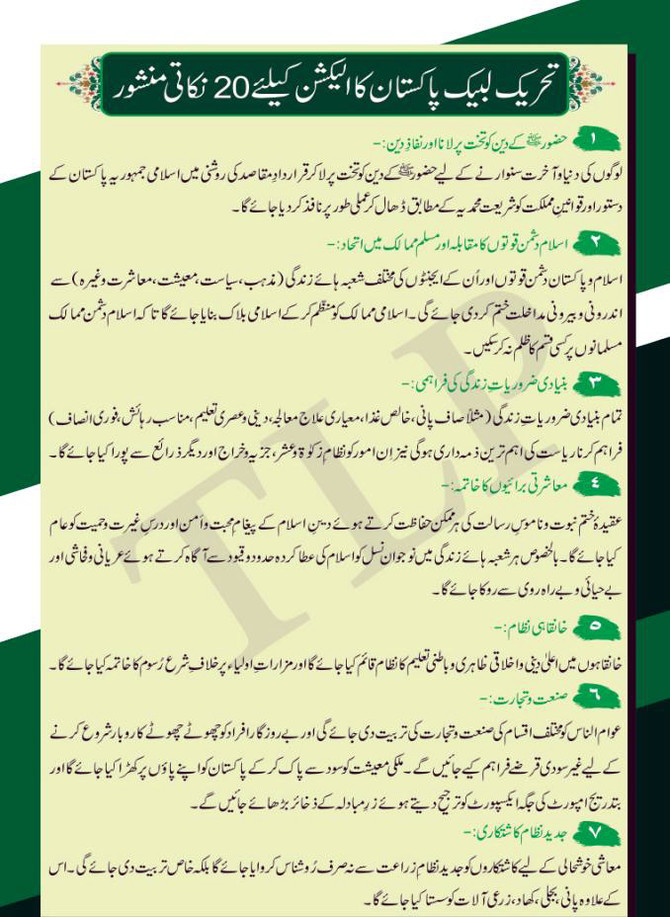 تحریک لبیک پاکستان کا الیکشن کیلئے 20 نکاتی منشور
۱ حضور ﷺ کے دین کو تخت پر لانا اور نفاذِ دین:-
لوگوں کی دنیا و آخرت سنوارنے کے لیے حضور ﷺ کے دین کو تخت پر لا کر قراردادِ مقاصد کی روشنی میں اسلامی جمہوریہ پاکستان کے
دستور اور قوانینِ مملکت کو شریعت محمدیہ کے مطابق ڈھال کر عملی طور پر نافذ کر دیا جائے گا۔
۲ اسلام دشمن قوتوں کا مقابلہ اور مسلم ممالک میں اتحاد:-
اسلام و پاکستان دشمن قوتوں اور اُن کے ایجنٹوں کی مختلف شعبہ ہائے زندگی (مذہب، سیاست، معیشت، معاشرت وغیرہ) سے
اندرونی و بیرونی مداخلت ختم کر دی جائے گی۔ اسلامی ممالک کو منظم کر کے اسلامی بلاک بنایا جائے گا تاکہ اسلام دشمن ممالک
مسلمانوں پر کسی قسم کا ظلم نہ کر سکیں۔
۳ بنیادی ضروریاتِ زندگی کی فراہمی:-
تمام بنیادی ضروریاتِ زندگی (مثلاً صاف پانی، خالص غذا، معیاری علاج معالجہ، دینی و عصری تعلیم، مناسب رہائش، فوری انصاف)
فراہم کرنا ریاست کی اہم ترین ذمہ داری ہوگی نیز ان امور کو نظامِ زکوٰۃ و عشر، جزیہ و خراج اور دیگر ذرائع سے پورا کیا جائے گا۔
٤ معاشرتی برائیوں کا خاتمہ:-
عقیدۂ ختم نبوت و ناموسِ رسالت کی ہر ممکن حفاظت کرتے ہوئے دینِ اسلام کے پیغامِ محبت و اُمن اور درسِ غیرت و حمیت کو عام
کیا جائے گا۔ بالخصوص ہر شعبہ ہائے زندگی میں نوجوان نسل کو اسلام کی عطا کردہ حدود و قیود سے آگاہ کرتے ہوئے عریانی و فحاشی اور
بے حیائی و بے راہ روی سے روکا جائے گا۔
٥ خانقاہی نظام:-
خانقاہوں میں اعلیٰ دینی و اخلاقی ظاہری و باطنی تعلیم کا نظام قائم کیا جائے گا اور مزاراتِ اولیاء پر خلافِ شرع رُسوم کا خاتمہ کیا جائے گا۔
٦ صنعت و تجارت:-
عوام الناس کو مختلف اقسام کی صنعت و تجارت کی تربیت دی جائے گی اور بے روزگار افراد کو چھوٹے چھوٹے کاروبار شروع کرنے
کے لیے غیر سودی قرضے فراہم کیے جائیں گے۔ ملکی معیشت کو سود سے پاک کر کے پاکستان کو اپنے پاؤں پر کھڑا کیا جائے گا اور
بتدریج امپورٹ کی جگہ ایکسپورٹ کو ترجیح دیتے ہوئے زرِ مبادلہ کے ذخائر بڑھائے جائیں گے۔
۷ جدید نظامِ کاشتکاری:-
معاشی خوشحالی کے لیے کاشتکاروں کو جدید نظامِ زراعت سے نہ صرف رُوشناس کروایا جائے گا بلکہ خاص تربیت دی جائے گی۔ اس
کے علاوہ پانی، بجلی، کھاد، زرعی آلات کو سستا کیا جائے گا۔
TLP